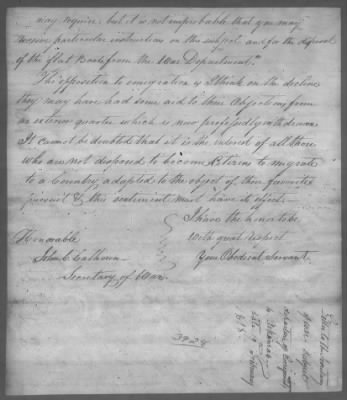 may require: but it is not improbable that you may
receive particular instructions on this subject and for the disposal
of the flat Boats from the War Department."
The opposition to emigration is I think on the decline
they may have had some aid to their objections from
an interior quarter which is now professedly withdrawn
It cannot be doubted that it is the interest of all those
who are not disposed to become citizens to migrate
to a Country adapted to the object of their favorite
pursuit & this sentiment must have its effect.
I have the honor to be
With great respect
Your Obedient Servant.
Honorable
John C. Calhoun
Secretary of War.
3928